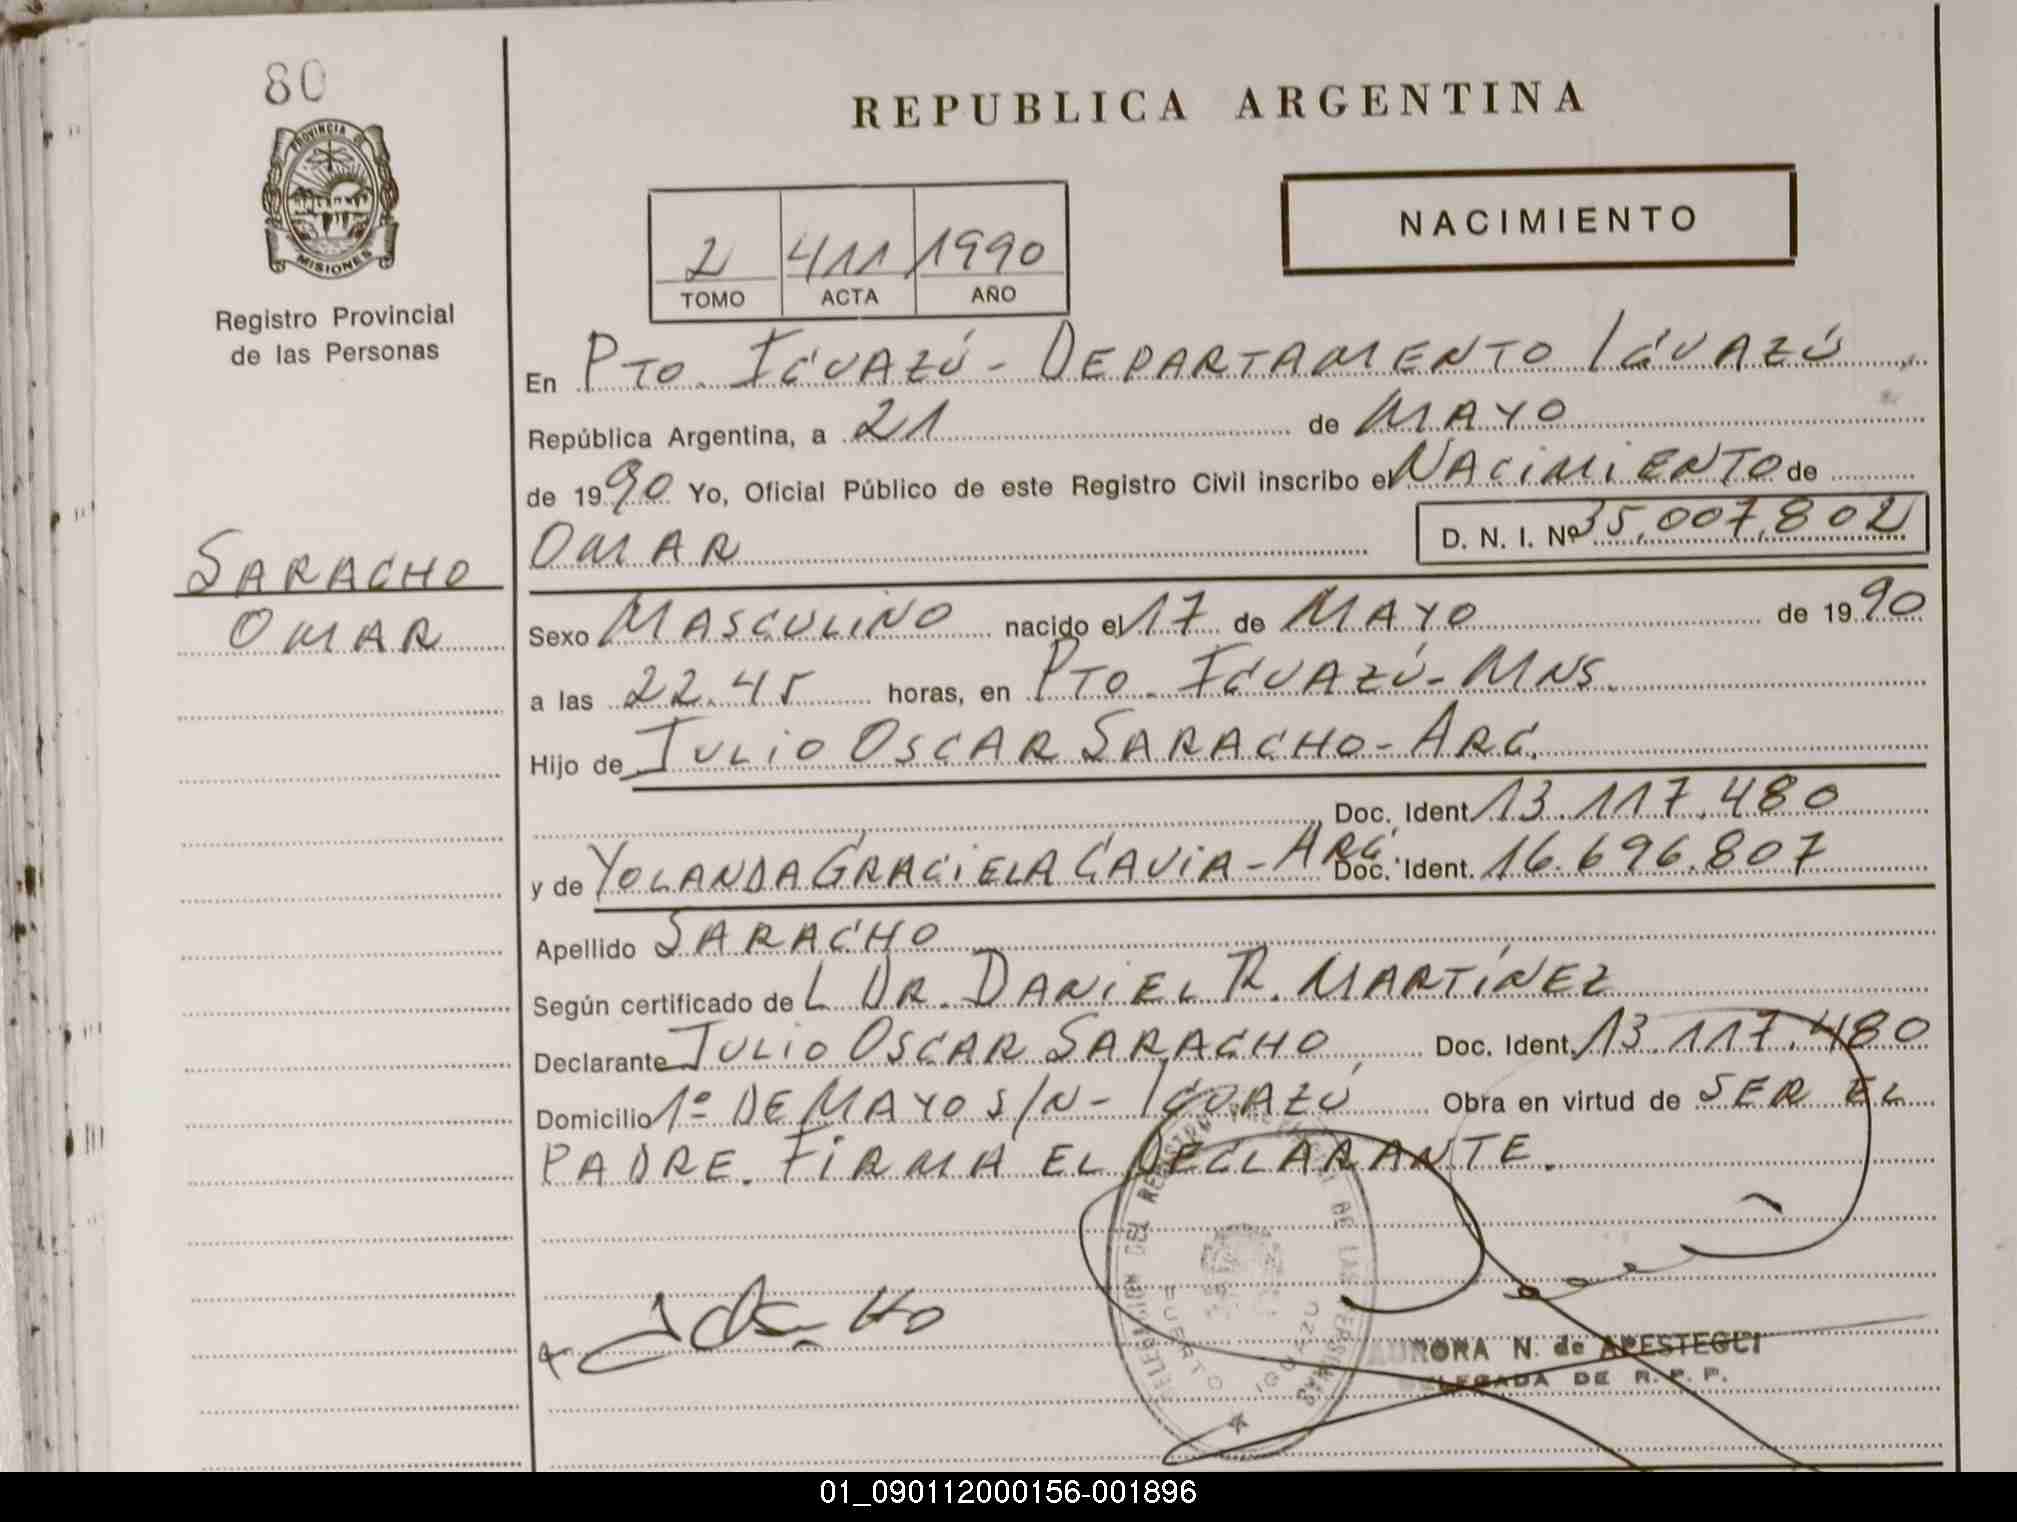 80
PROVINCIA DE
MISIONES
Registro Provincial
de las Personas
SARACHO
OMAR
REPUBLICA ARGENTINA
NACIMIENTO
2 411 1990
TOMO ACTA AÑO
En PTO. IGUAZÚ - DEPARTAMENTO IGUAZÚ
República Argentina, a 21 de MAYO
de 1990 Yo, Oficial Público de este Registro Civil inscribo el NACIMIENTO de
OMAR D. N. I. Nº 35.007.802
Sexo MASCULINO nacido el 17 de MAYO de 1990
a las 22.45 horas, en PTO. IGUAZÚ - MNS.
Hijo de JULIO OSCAR SARACHO - ARG.
Doc. Ident. 13.117.480
y de YOLANDA GRACIELA GAVIA - ARG. Doc. Ident. 16.696.807
Apellido SARACHO
Según certificado de L DR. DANIEL R. MARTÍNEZ
Declarante JULIO OSCAR SARACHO Doc. Ident. 13.117.480
Domicilio 1º DE MAYO S/N - IGUAZÚ Obra en virtud de SER EL
PADRE. FIRMA EL DECLARANTE.
DELEGACION DEL REGISTRO PROVINCIAL DE LAS PERSONAS
PUERTO IGUAZU
AURORA N. de APESTEGUI
DELEGADA DE R. P. P.
01_090112000156-001896